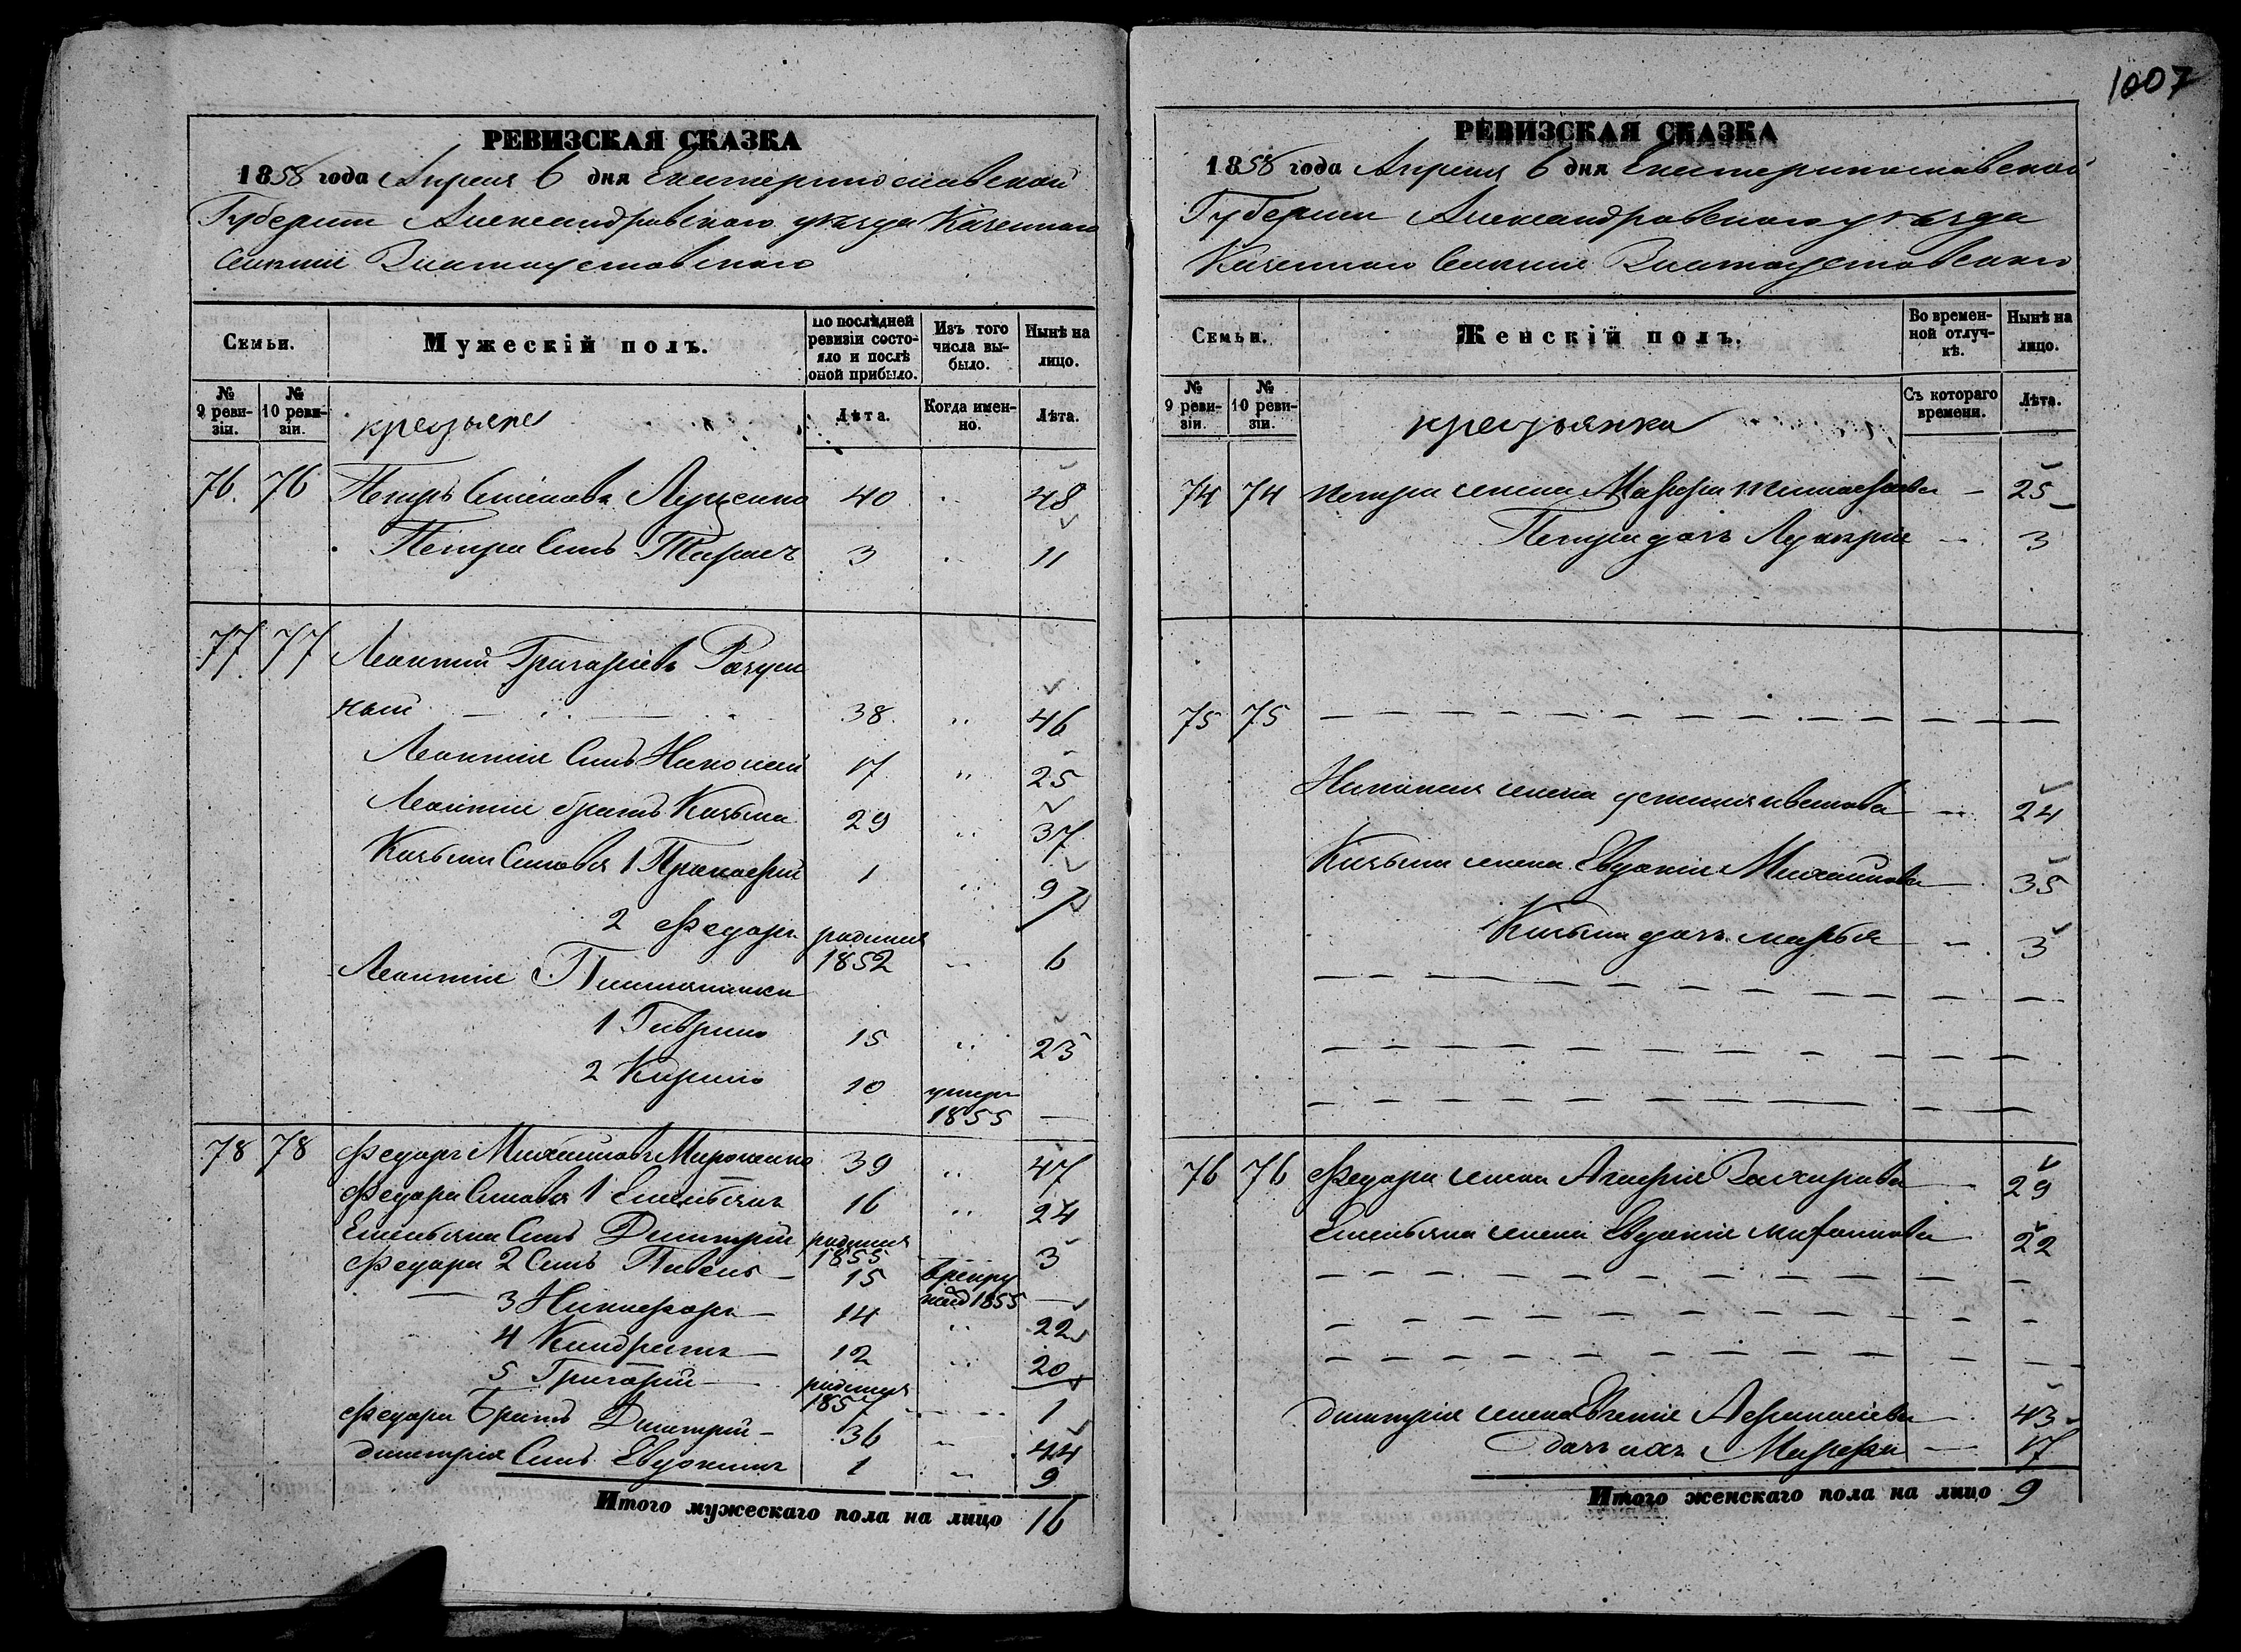 1007
РЕВИЗСКАЯ СКАЗКА
1858 года Апреля 6 дня Екатеринославской
Губернии Александровского уѣзда Казенного
Селенія Златоустовского
Семьи.
Мужескій полъ.
По послѣдней ревизіи состояло и послѣ оной прибыло.
Изъ того числа выбыло.
Нынѣ на лицо.
№ 9 ревизіи.
№ 10 ревизіи.
крезьяне
Лѣта.
Когда именно.
Лѣта.
76. 76 Петръ Семеновъ 40 " 48
Петра Сынъ Тарасъ 3 " 11
77 77 Леонтий Григоріевъ
38. " 46
Леонтия Сынъ Николай 17 " 25
Леонтия братъ Козьма 29 " 37
Козьмы Сыновья 1 Пракофий 1 " 9
2 Федоръ родился 1852 " 6
Леонтия Племянники
1 Гаврило 15 " 23
2 Кирило 10 умеръ 1855 —
78 78 Федоръ Михайловъ Мирошниченко 39 " 47
Федора Сыновья 1 Емельянъ 16 " 24
Емельяна Сынъ Дмитрій родился 1855 3
Федора 2 Сынъ Павелъ — 15 врекру 1855 —
3 Никифоръ — 14 " 22
4 Кондратъ — 12 " 20
5 Григорий — родился 1857 " 1
Федора братъ Дмитрий — 36 " 44
Дмитрия Сынъ Евдокимъ 1 " 9
Итого мужескаго пола на лицо 16
РЕВИЗСКАЯ СКАЗКА
1858 года Апреля 6 дня Екатеринославской
Губернии Александровского уѣзда
Казенного Селенія Златоустовского
Семьи.
Женскій полъ.
Во временной отлучкѣ.
Нынѣ на лицо.
№ 9 ревизіи.
№ 10 ревизіи.
крезьянки
Съ котораго времени.
Лѣта.
74 74 Петра жена Марфа Тимофеева — 25
Петра дочь — 3
75 75 — — —
Николая жена устиния — 24
Козьмы жена Евдокия Михайлова — 35
Козьмы дочь марья — 3
76 76 Федора жена Агафия Захарова — 29
Емельяна жена Евдокия — 22
Дмитрия жена Евгения Афанасиева — 43
дочь ихъ Марфа — 17
Итого женскаго пола на лицо 9